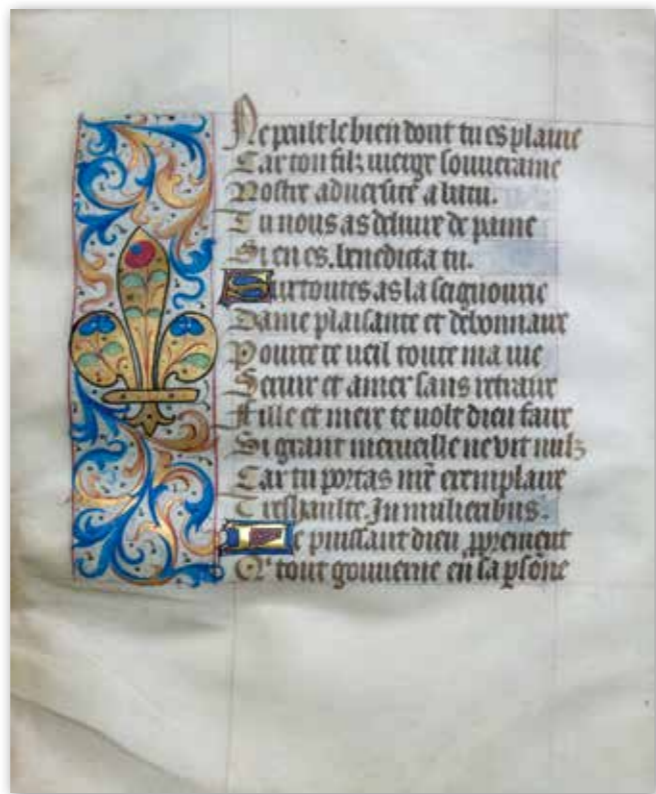 Ne peult le bien dont tu es plaine
Car ton filz vierge souveraine
Nostre adversite a batu.
Tu nous as delivre de paine
Si en es. benedicta tu.
Sur toutes as la seignourie
Dame plaisante et debonnaire
Pource te ueil toute ma vie
Servir et amer sans retraire
Fille et mere te volt dieu faire
Si grant merveille ne vit nulz
Car tu portas nrẽ exemplaire
Treshaulte. In mulieribus.
Le puissant dieu, proprement
Qͥ tout gouverne en sa psõne